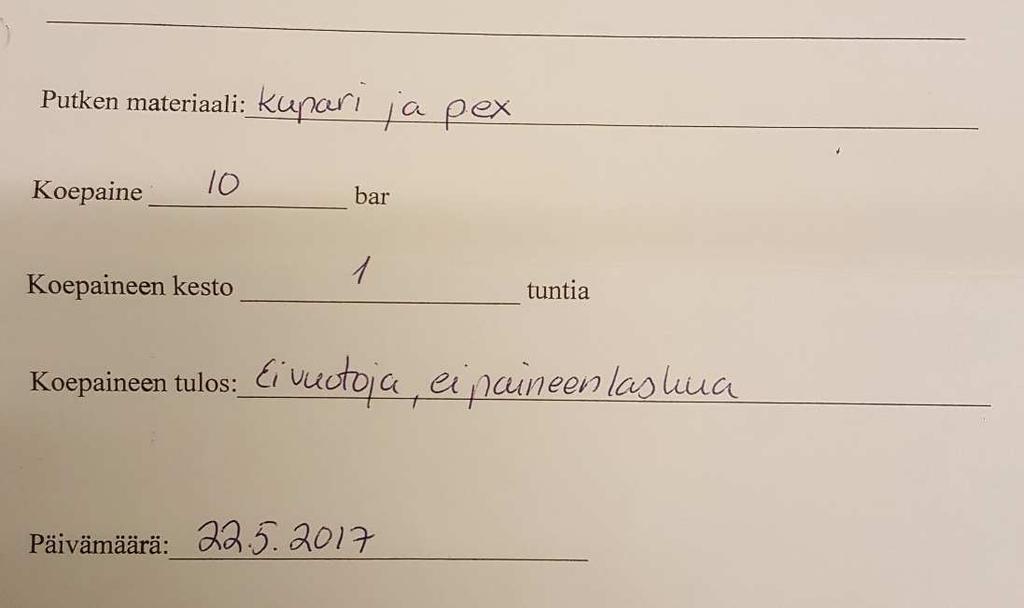 Putken materiaali: kupari ja pex
Koepaine 10 bar
Koepaineen kesto 1 tuntia
Koepaineen tulos: Ei vuotoja, ei paineenlaskua
Päivämäärä: 22.5.2017